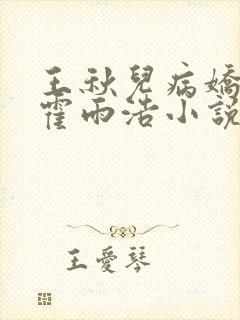 王秋兒病嬌
霍雨浩小說
王愛琴